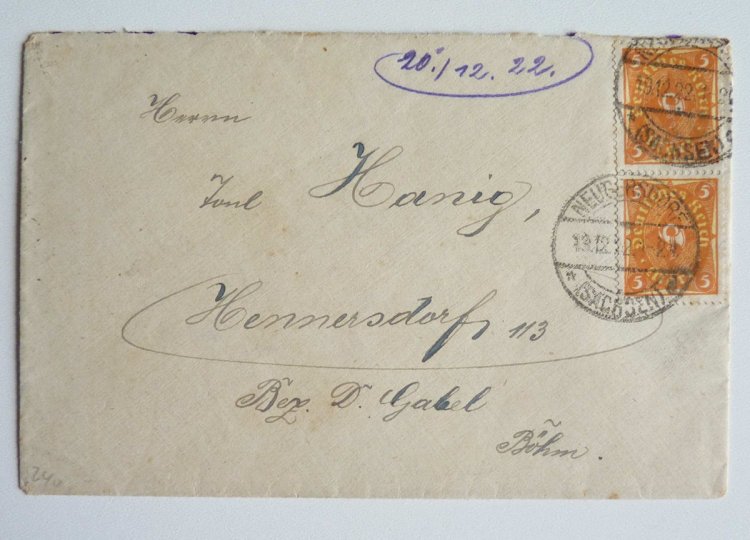 20./12. 22.
Herrn
Toni Hanig,
Hennersdorf 113
Bez. D. Gabel
Böhm.
5 5
Deutsches Reich
5 5
19.12.22.
* (SACHSEN)
5 5
Deutsches Reich
5 5
NEUGERSDORF
19.12.22
* (SACHSEN)